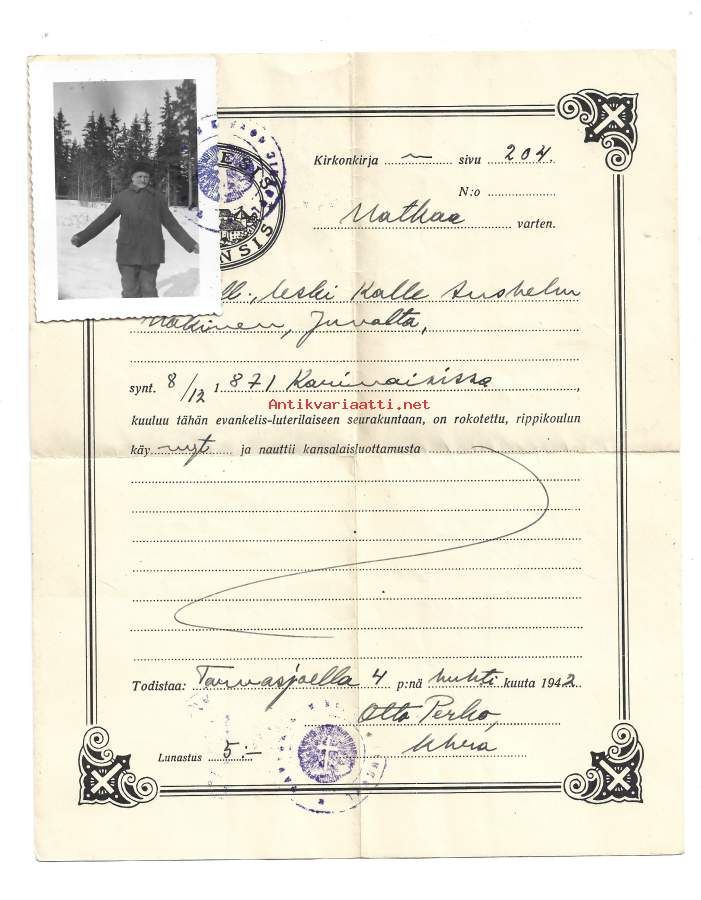 Kirkonkirja sivu 204
N:o
Matkaa varten.
ll., leski Kalle
Mäkinen,
synt. 8/12 1871 Karinaisissa,
Antikvariaatti.net
kuuluu tähän evankelis-luterilaiseen seurakuntaan, on rokotettu, rippikoulun
käynyt ja nauttii kansalaisluottamusta
Todistaa: Tarvasjoella 4 p:nä huhti kuuta 1942
Otto Perho,
khra
Lunastus 5:-